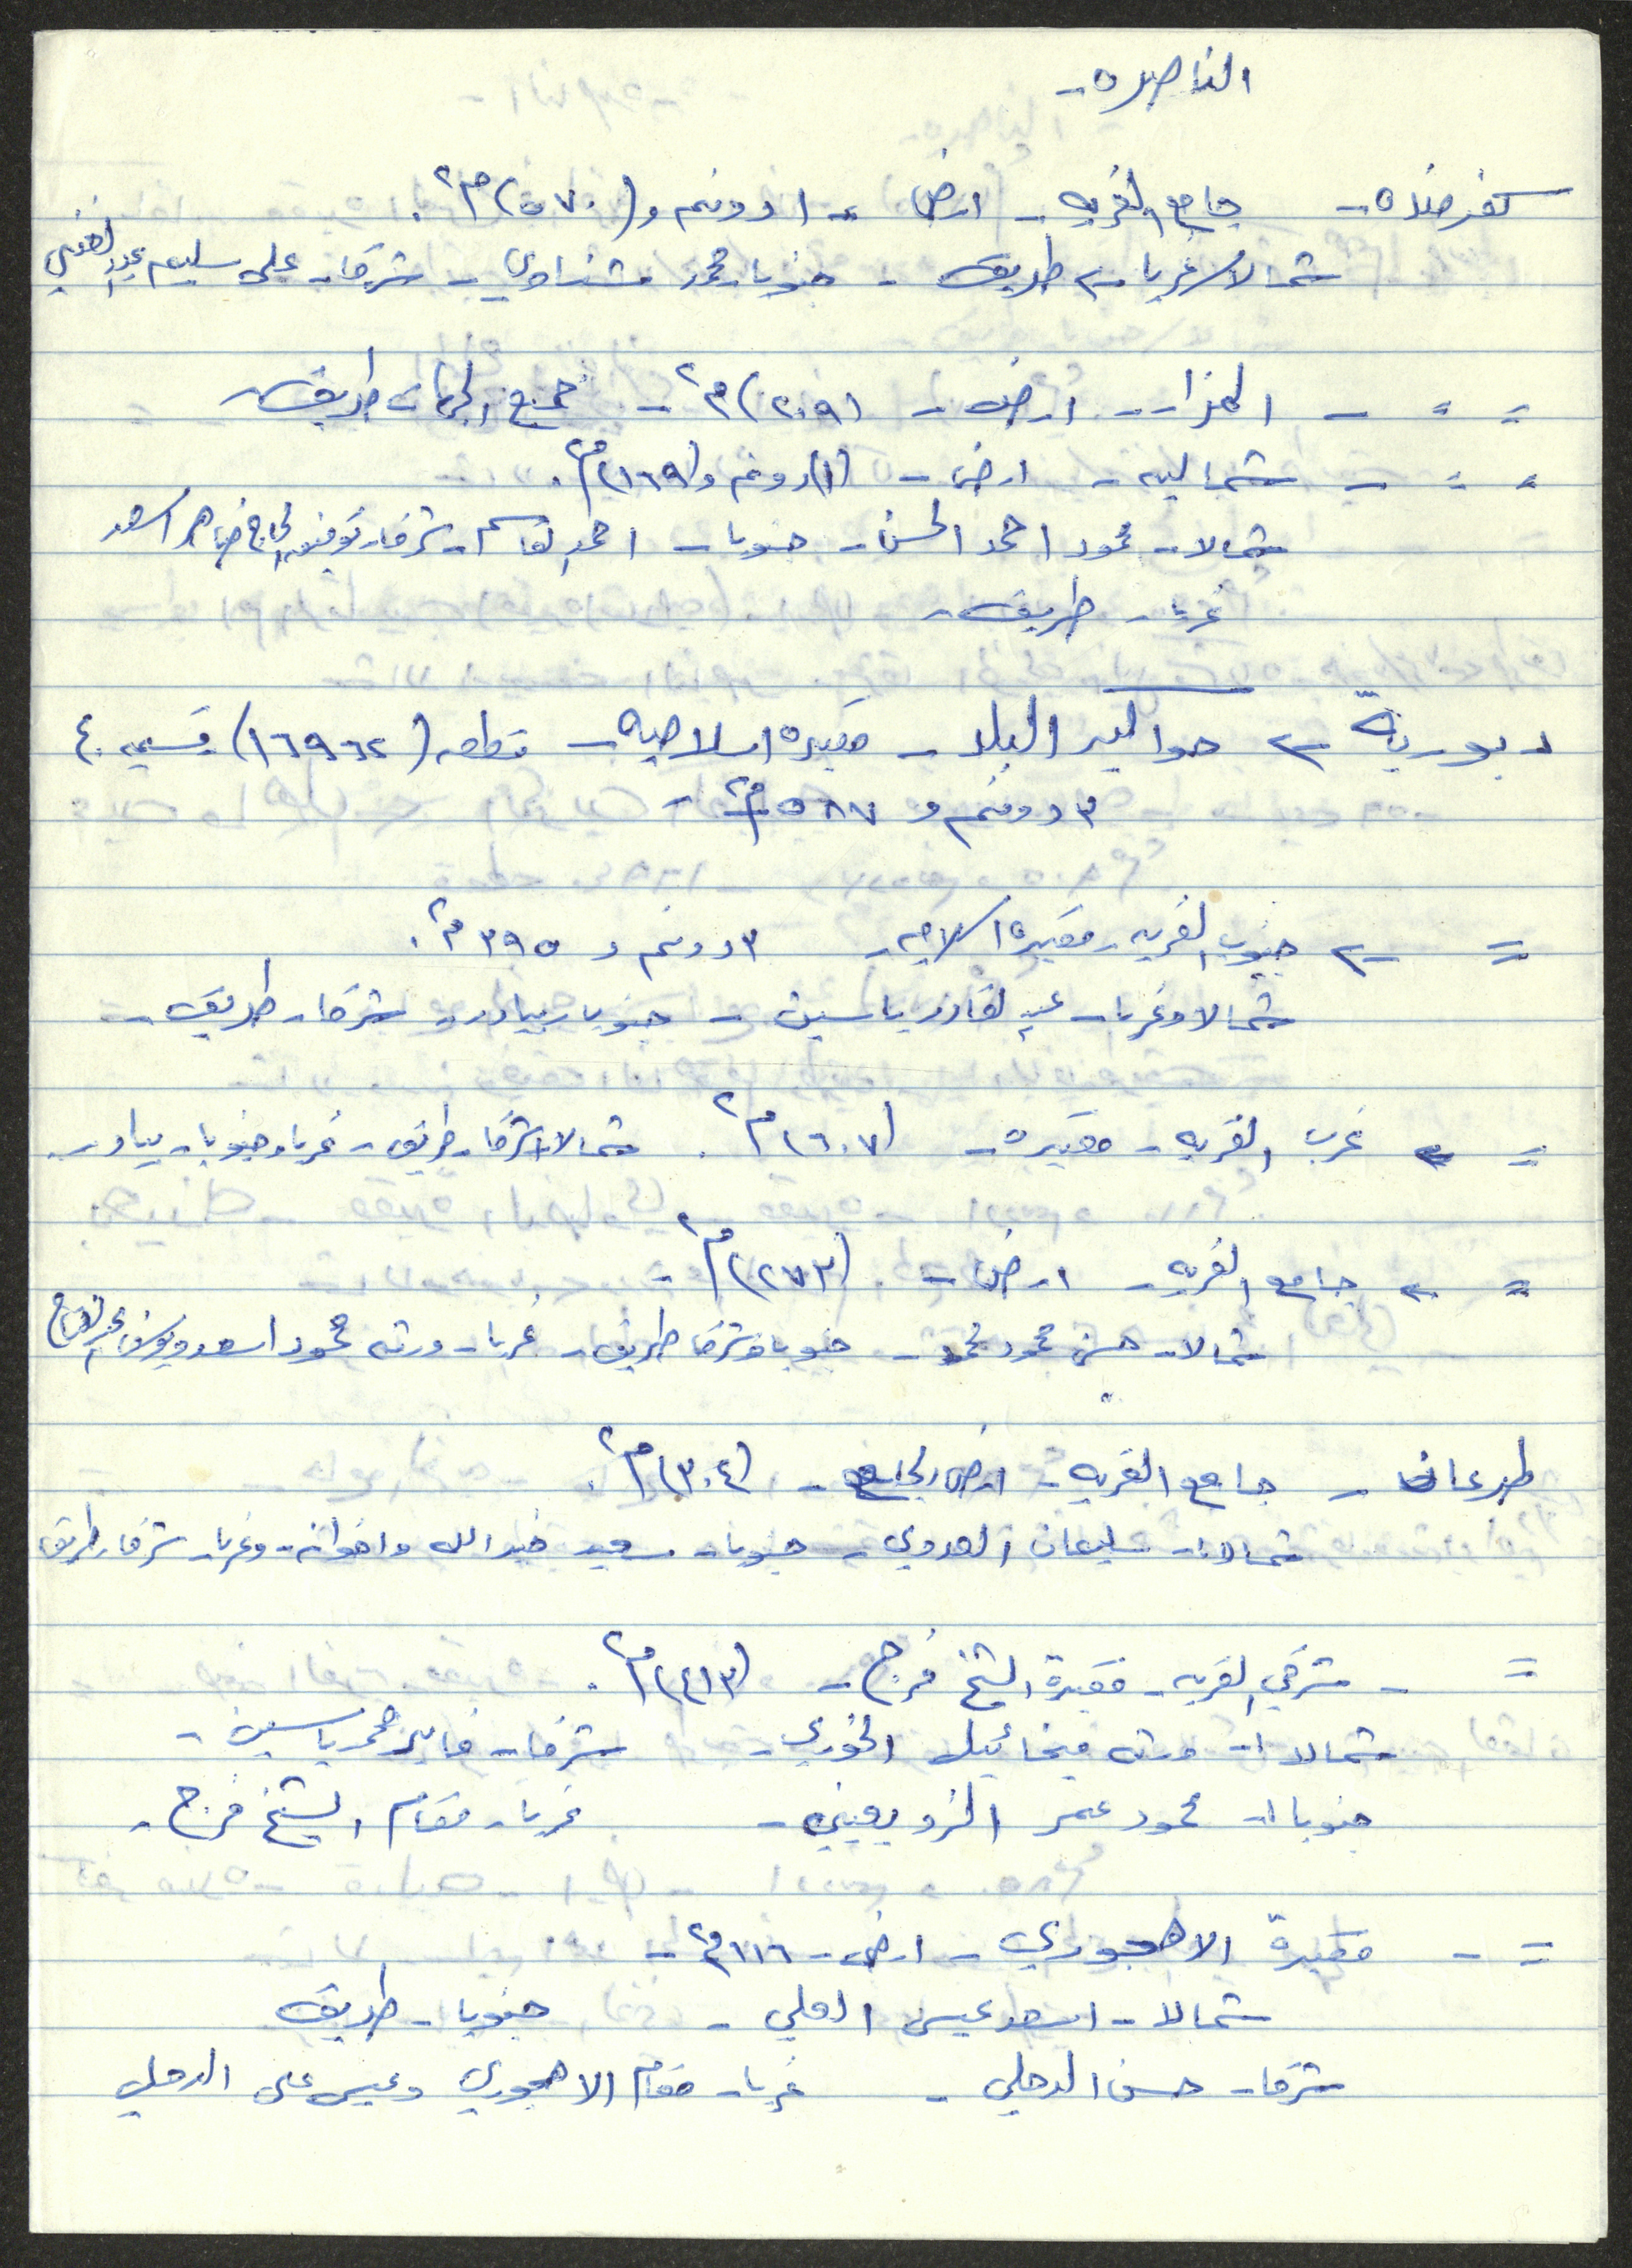 الناصره -
كفر منده - جامع القريه - ارض - ١ دونم و (٥٧٠) م٢.
شمالا وغربا - طريق - جنوبا - محمد شناوي - شرقا - علي سليم عبد الغني
= = - المزار - ارض - (٢٠٩) م٢ - جميع الجهات طريق
= = - شماليه - ارض - (١) دونم و (١٦٩) م٢.
شمالا - محمود احمد الحسن - جنوبا - احمد القاسم - شرقا - توفيق الحاج ظاهر اسعد
غربا - طريق -
دبورية - حواكير البلد - مقبره اسلاميه - قطعه (١٦٩٦٢) قسيمه ٤٠
٣ دونم و ٥٨٧ م٢ -
= - جنوب القريه - مقبره اسلاميه - ٣ دونم و ٣٩٥ م٢.
شمالا وغربا - عبد القادر ياسين - جنوبا - بيادر - شرقا - طريق -
= - غرب القريه - مقبره - (٦٠٧) م٢. شمالا وشرقا - طريق - غربا وجنوبا - بيادر -
= - جامع القريه - ارض - (٢٧٣) م٢ -
شمالا - حسن محمود محمد - جنوبا وشرقا طريق - غربا - ورثه محمود اسعد ويوسف عبد الفتاح
طرعان - جامع القريه - ارض الجامع - (٣٠٤) م٢.
شمالا - سليمان العدوي - جنوبا - سعيد خير الله واخوانه - وغربا - شرقا - طريق
= - شرقي القريه - مقبرة الشيخ فرج - (٤١٣) م٢.
شمالا - ورثه ميخائيل الخوري - شرقا - فايز محمد ياسين -
جنوبا - محمود عمر - غربا - مقام الشيخ فرج -
= - مقبرة الاهجوري - ارض - ١١٦ م٢ -
شمالا - اسعد عيسى العلي - جنوبا - طريق
شرقا - حسن الدحلي - غربا - مقام الاهجوري وعيسى علي الدحلي